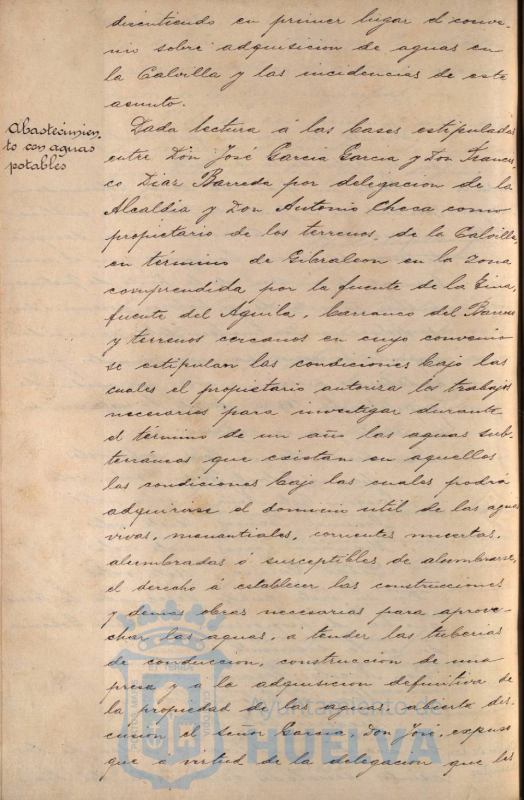 discutiendo en primer lugar el conve-
nio sobre adquisicion de aguas en
la Calvilla y las incidencias de este
asunto.
Abastecimien-
to con aguas
potables
Dada lectura á las bases estipuladas
entre Don José Garcia Garcia y Don Francis-
co Diaz Barreda por delegacion de la
Alcaldia y Don Antonio Checa como
propietario de los terrenos de la Calvilla,
en término de Gibraleon en la zona
comprendida por la fuente de la
fuente del Aguila, barranco del
y terrenos cercanos en cuyo convenio
se estipulan las condiciones bajo las
cuales el propietario autoriza los trabajos
necesarios para investigar durante
el término de un año las aguas sub-
terráneas que existan en aquellos
las condiciones bajo las cuales podrá
adquirirse el dominio util de las aguas
vivas, manantiales, corrientes muertas,
alumbradas ó susceptibles de alumbrarse,
el derecho á establecer las construcciones
y demas obras necesarias para aprove-
char las aguas, á tender las tuberias
de conduccion, construccion de una
presa y á la adquisicion definitiva de
la propiedad de las aguas abierta dis-
cusion el señor Garcia, Don José, expuso
que á virtud de la delegacion que les
Ayuntamiento de
HUELVA